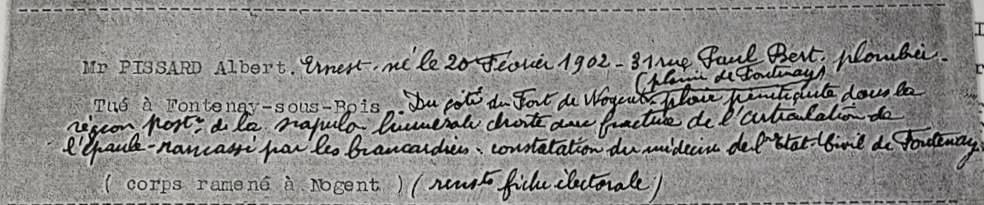 Mr PISSARD Albert. Ernest. né le 20 Février 1902 - 31 rue Paul Bert. plombier.
(plaine de Fontenay)
Tué à Fontenay-sous-Bois. Du côté du Fort de Nogent - plaie pénétrante dans la
région postre de la scapulo humérale droite avec fracture de l'articulation de
l'épaule - ramassé par les brancardiers. constatation du médecin de l'Etat-Civil de Fontenay.
( corps ramené à Nogent ) ( fiche électorale )